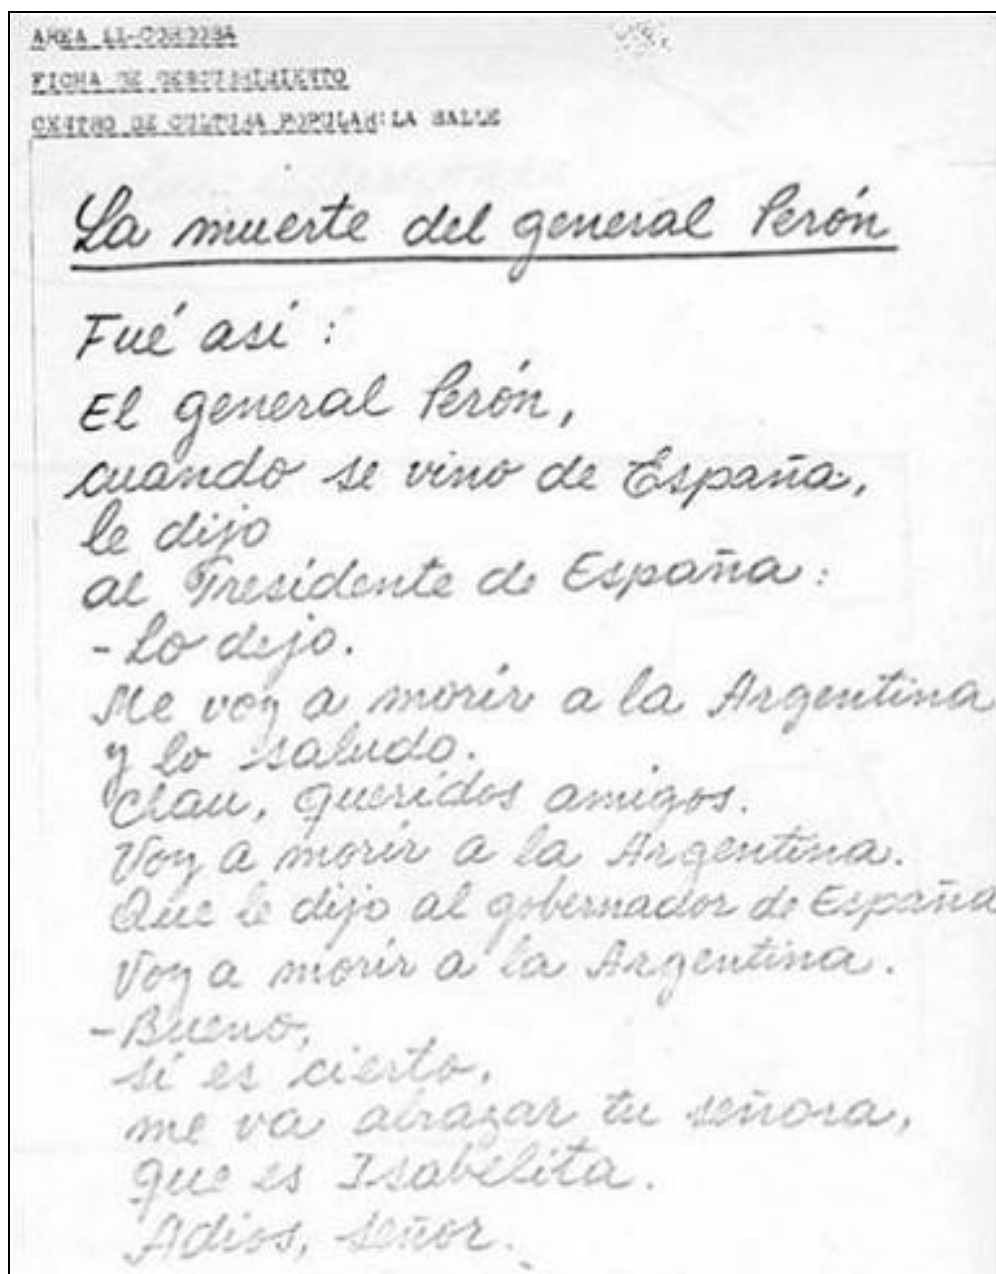 AREA 11-CORDOBA
FICHA DE DESCUBRIMIENTO
CENTRO DE CULTURA POPULAR: LA SALLE
La muerte del general Perón
Fué así :
El general Perón,
cuando se vino de España,
le dijo
al Presidente de España :
- Lo dejo.
Me voy a morir a la Argentina
y lo saludo.
Chau, queridos amigos.
Voy a morir a la Argentina.
Que le dijo al gobernador de España
Voy a morir a la Argentina.
- Bueno,
si es cierto,
me va abrazar tu señora,
que es Isabelita.
Adios, señor.